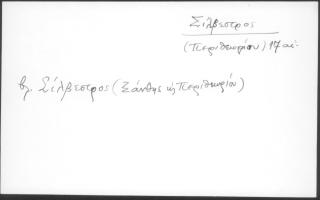 Σίλβεστρος
(Περιθεωρίου) 17 αι.
βλ. Σίλβεστρος (Ξάνθης κ Περιθεωρίου)